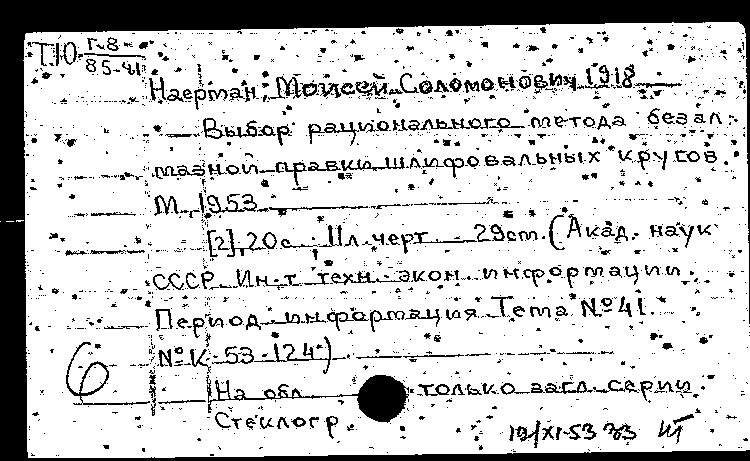 Т.10 Г-8
85-41
Наерман, Моисей Соломонович, 1918
Выбор рационального метода безал-
мазной правки шлифовальных кругов.
М., 1953
[2], 20 с. Илл. черт. 29 cm. (Акад. наук
СССР. Ин-т техн.-экон. информации.
Период. информация. Тема № 41.
№ К-53-124)
6
На обл. только загл. серии.
Стеклогр.
53